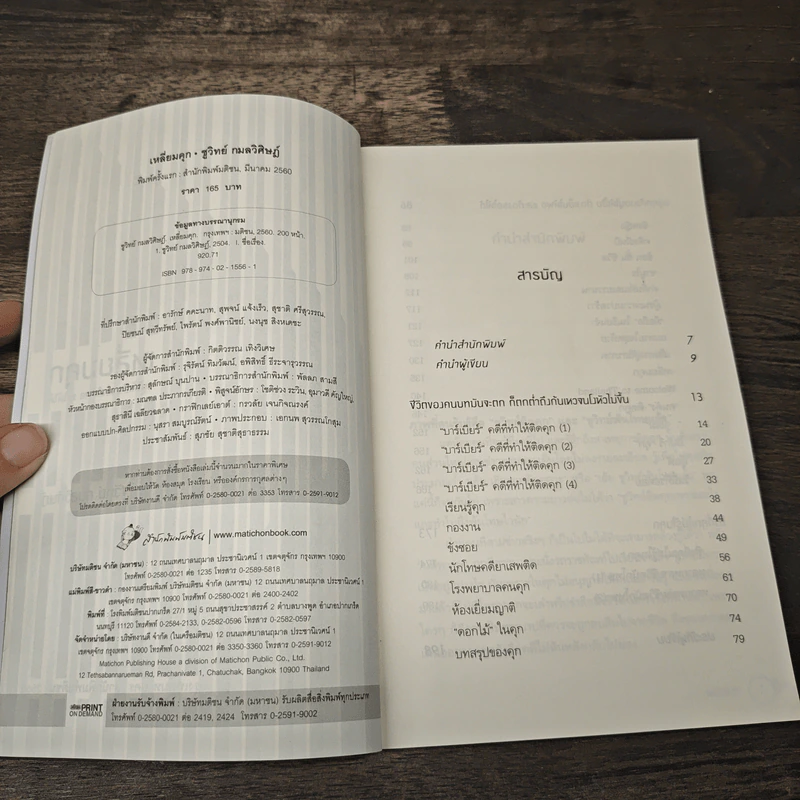 เหลี่ยมคุก • ชูวิทย์ กมลวิศิษฎ์
พิมพ์ครั้งแรก : สำนักพิมพ์มติชน, มีนาคม 2560
ราคา 165 บาท
ข้อมูลทางบรรณานุกรม
ชูวิทย์ กมลวิศิษฎ์. เหลี่ยมคุก. กรุงเทพฯ : มติชน, 2560. 200 หน้า.
1. ชูวิทย์ กมลวิศิษฎ์, 2504. I. ชื่อเรื่อง.
920.71
ISBN 978 - 974 - 02 - 1556 - 1
ที่ปรึกษาสำนักพิมพ์ : อารักษ์ คคะนาท, สุพจน์ แจ้งเร็ว, สุชาติ ศรีสุวรรณ,
ปิยชนน์ สุทวีทรัพย์, ไพรัตน์ พงศ์พานิชย์, นงนุช สิงหเดชะ
ผู้จัดการสำนักพิมพ์ : กิตติวรรณ เทิงวิเศษ
รองผู้จัดการสำนักพิมพ์ : รุจิรัตน์ ทิมวัฒน์, อพิสิทธิ์ ธีระจารุวรรณ
บรรณาธิการบริหาร : สุลักษณ์ บุนปาน • บรรณาธิการสำนักพิมพ์ : พัลลภ สามสี
หัวหน้ากองบรรณาธิการ : มณฑล ประภากรเกียรติ • พิสูจน์อักษร : โชติช่วง ระวิน, อุมาวดี คัญใหญ่,
สุธาสินี เฉลียวฉลาด • กราฟิกเลย์เอาต์ : กรวลัย เจนกิจณรงค์
ออกแบบปก-ศิลปกรรม : นุสรา สมบูรณ์รัตน์ • ภาพประกอบ : เอกนพ สุวรรณโกสุม
ประชาสัมพันธ์ : สุภชัย สุชาติสุธาธรรม
หากท่านต้องการสั่งซื้อหนังสือเล่มนี้จำนวนมากในราคาพิเศษ
เพื่อมอบให้วัด ห้องสมุด โรงเรียน หรือองค์กรการกุศลต่างๆ
โปรดติดต่อโดยตรงที่ บริษัทงานดี จำกัด โทรศัพท์ 0-2580-0021 ต่อ 3353 โทรสาร 0-2591-9012
สำนักพิมพ์มติชน | www.matichonbook.com
บริษัทมติชน จำกัด (มหาชน) : 12 ถนนเทศบาลนฤมาล ประชานิเวศน์ 1 เขตจตุจักร กรุงเทพฯ 10900
โทรศัพท์ 0-2580-0021 ต่อ 1235 โทรสาร 0-2589-5818
แม่พิมพ์สี-ขาวดำ : กองงานเตรียมพิมพ์ บริษัทมติชน จำกัด (มหาชน) 12 ถนนเทศบาลนฤมาล ประชานิเวศน์ 1
เขตจตุจักร กรุงเทพฯ 10900 โทรศัพท์ 0-2580-0021 ต่อ 2400-2402
พิมพ์ที่ : โรงพิมพ์มติชนปากเกร็ด 27/1 หมู่ 5 ถนนสุขาประชาสรรค์ 2 ตำบลบางพูด อำเภอปากเกร็ด
นนทบุรี 11120 โทรศัพท์ 0-2584-2133, 0-2582-0596 โทรสาร 0-2582-0597
จัดจำหน่ายโดย : บริษัทงานดี จำกัด (ในเครือมติชน) 12 ถนนเทศบาลนฤมาล ประชานิเวศน์ 1
เขตจตุจักร กรุงเทพฯ 10900 โทรศัพท์ 0-2580-0021 ต่อ 3350-3360 โทรสาร 0-2591-9012
Matichon Publishing House a division of Matichon Public Co., Ltd.
12 Tethsabannarueman Rd, Prachanivate 1, Chatuchak, Bangkok 10900 Thailand
PRINT ON DEMAND
ฝ่ายงานรับจ้างพิมพ์ : บริษัทมติชน จำกัด (มหาชน) รับผลิตสื่อสิ่งพิมพ์ทุกประเภท
โทรศัพท์ 0-2580-0021 ต่อ 2419, 2424 โทรสาร 0-2591-9002
สารบัญ
คำนำสำนักพิมพ์ 7
คำนำผู้เขียน 9
ชีวิตของคนบทมันจะตก ก็ตกต่ำถึงก้นเหวจนโงหัวไม่ขึ้น 13
"บาร์เบียร์" คดีที่ทำให้ติดคุก (1) 14
"บาร์เบียร์" คดีที่ทำให้ติดคุก (2) 20
"บาร์เบียร์" คดีที่ทำให้ติดคุก (3) 27
"บาร์เบียร์" คดีที่ทำให้ติดคุก (4) 33
เรียนรู้คุก 38
กองงาน 44
ขังซอย 49
นักโทษคดียาเสพติด 56
โรงพยาบาลคนคุก 61
ห้องเยี่ยมญาติ 70
"ดอกไม้" ในคุก 74
บทสรุปของคุก 79